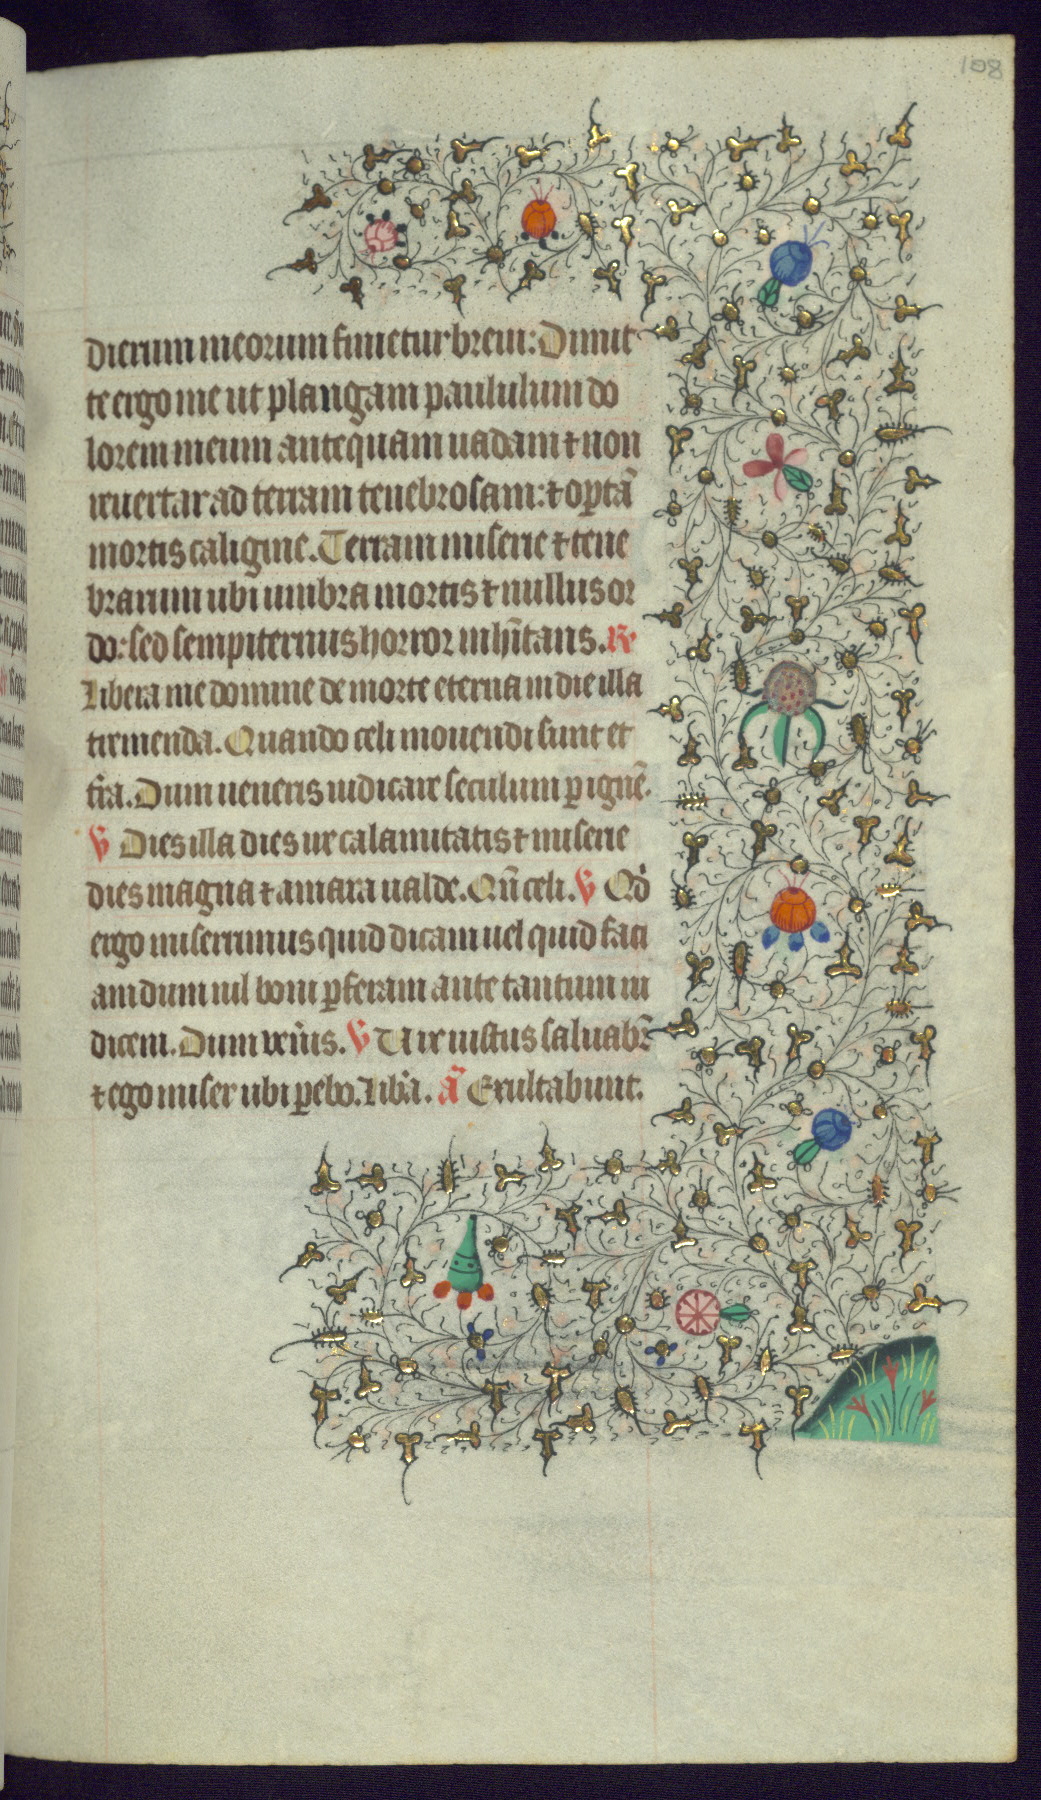 108
dierum meorum finietur brevi: Dimit
te ergo me ut plangam paululum do
lorem meum antequam uadam ⁊ non
reuertar ad terram tenebrosam: ⁊ optā
mortis caligine. Terram miserie ⁊ tene
brarum ubi umbra mortis ⁊ nullus or
do: sed sempiternus horror inhītans. R
Libera me domine de morte eterna in die illa
tremenda. Quando celi mouendi sunt et
tr̄a. Dum ueneris iudicare seculum p ignē.
V Dies illa dies ire calamitatis ⁊ miserie
dies magna ⁊ amara ualde. Qn̄ celi. V Qd
ergo miserrimus quid dicam uel quid faci
am dum nil boni p̄feram ante tantum iu
dicem. Dum ven̄is. V Uix iustus saluabr̄
⁊ ego miser ubi pebo. Lib̄a. ā Exultabunt.